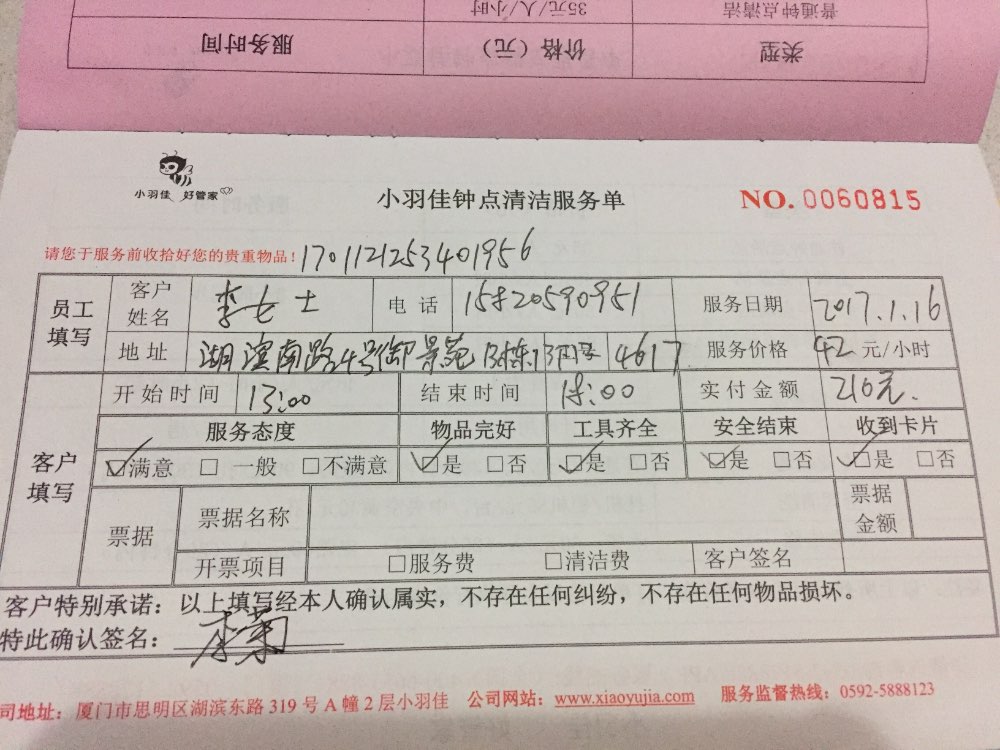 普通钟点清洁 35元/人/小时
类型 价格（元） 服务时间
小羽佳 好管家
小羽佳钟点清洁服务单
NO. 0060815
请您于服务前收拾好您的贵重物品！170112125340195６
员工填写 客户姓名 李女士 电话 15820590951 服务日期 2017.1.16
地址 湖滨南路4号御景苑 4617 服务价格 42 元/小时
客户填写 开始时间 13:00 结束时间 18:00 实付金额 210元.
服务态度 物品完好 工具齐全 安全结束 收到卡片
☑满意 □一般 □不满意 ☑是 □否 ☑是 □否 ☑是 □否 ☑是 □否
票据 票据名称 票据金额
开票项目 □服务费 □清洁费 客户签名
客户特别承诺：以上填写经本人确认属实，不存在任何纠纷，不存在任何物品损坏。
特此确认签名：
司地址：厦门市思明区湖滨东路 319 号 A 幢 2 层小羽佳 公司网站：www.xiaoyujia.com 服务监督热线：0592-5888123